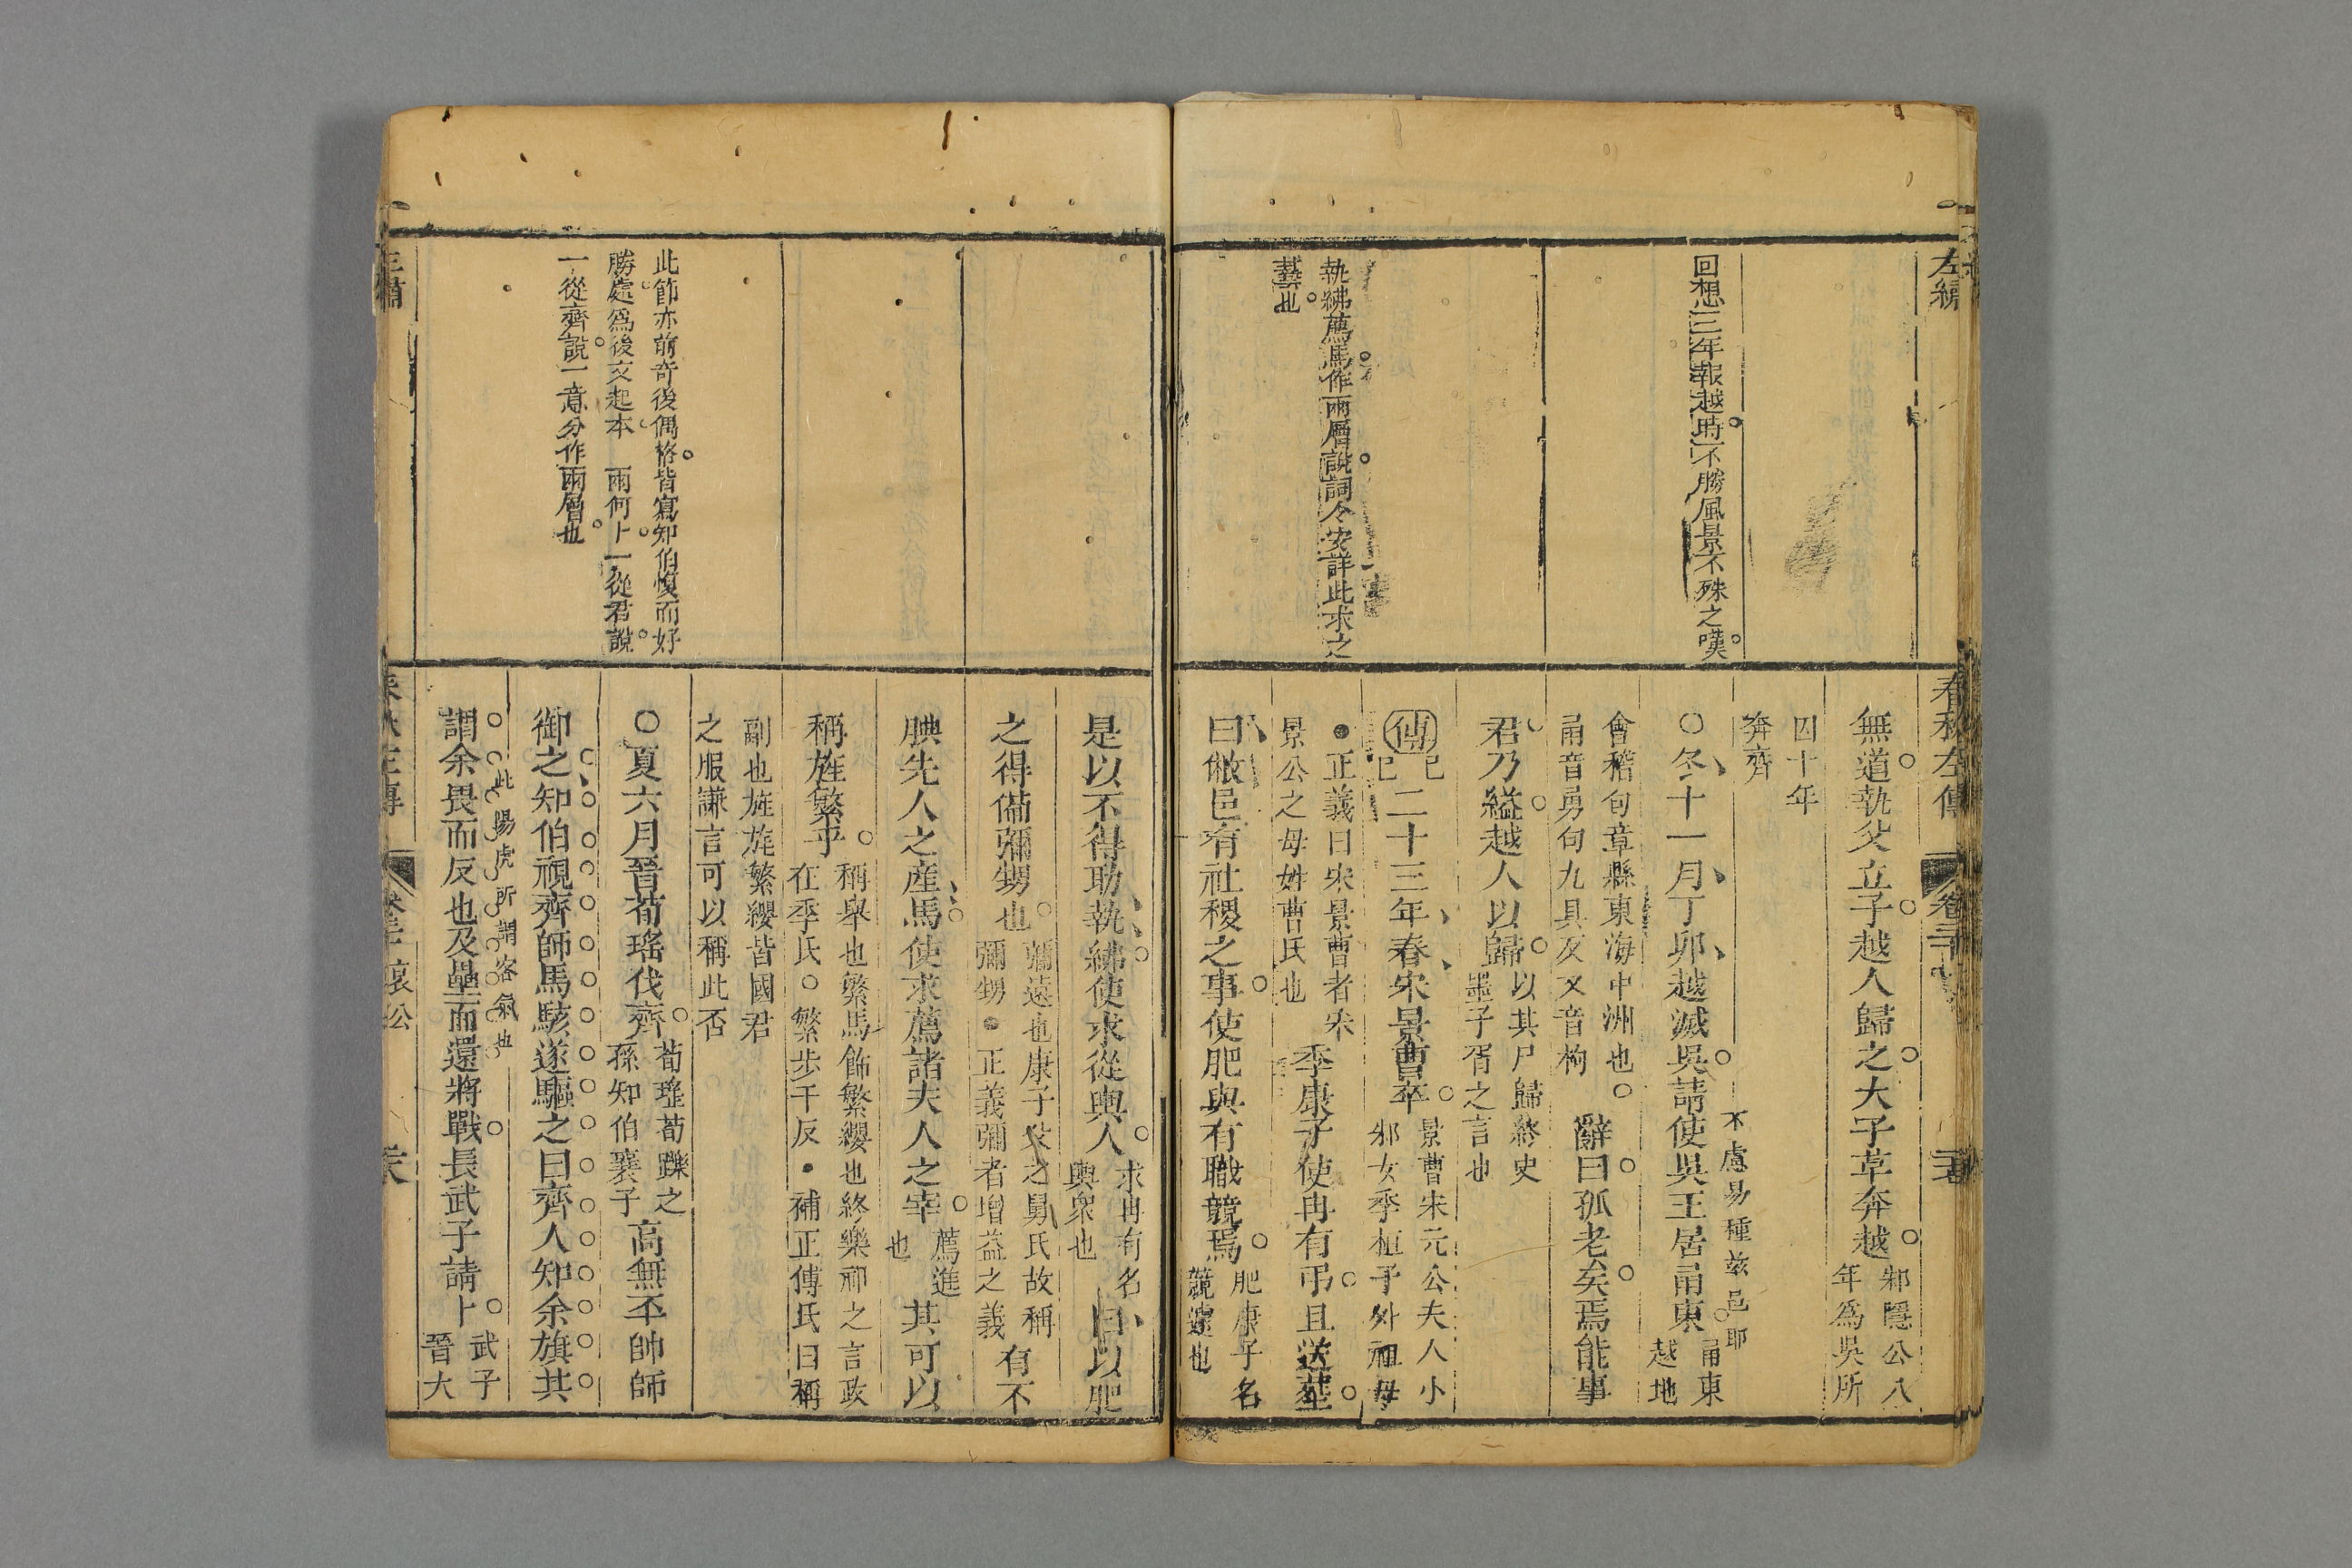 左繡
春秋左傳
卷三十
回想三年報越時不勝風景不殊之嘆
執紼薦馬作兩層說詞令安詳此求之
藝也
無道執父立子越人歸之大子革奔越
邾隱公八
年為吳所
囚十年
奔齊
○冬十一月丁卯越滅吳請使吳王居甬東
甬東
越地
不慮易種兹邑耶
會稽句章縣東海中洲也○
甬音勇句九具反又音枸
辭曰孤老矣焉能事
君乃縊越人以歸
以其尸歸終史
墨子胥之言也
傳
己巳
二十三年春宋景曹卒
景曹宋元公夫人小
邾女季桓子外祖母
●正義曰宋景曹者宋
景公之母姓曹氏也
季康子使冉有弔且送葬
曰敝邑有社稷之事使肥與有職競焉
肥康子名
競遽也
是以不得助執紼使求從輿人
求冉有名
輿衆也
曰以肥
之得備彌甥也
彌遠也康子父之舅氏故稱
彌甥●正義彌者增益之義
有不
腆先人之產馬使求薦諸夫人之宰
薦進
也
其可以
稱旌繁乎
稱舉也繁馬飾繁纓也終樂祁之言政
在季氏○繁步干反●補正傅氏曰稱
副也旌旌繁纓皆國君
之服謙言可以稱此否
○夏六月晉荀瑤伐齊
荀瑤荀躒之
孫知伯襄子
高無丕帥師
御之知伯視齊師馬駭遂驅之曰齊人知余旗其
此陽虎所謂客氣也
謂余畏而反也及壘而還將戰長武子請卜
武子
晉大
此節亦前奇後偶格皆寫知伯愎而好
勝處為後文起本　兩何卜一從君說
一從齊說一意分作兩層也
哀公